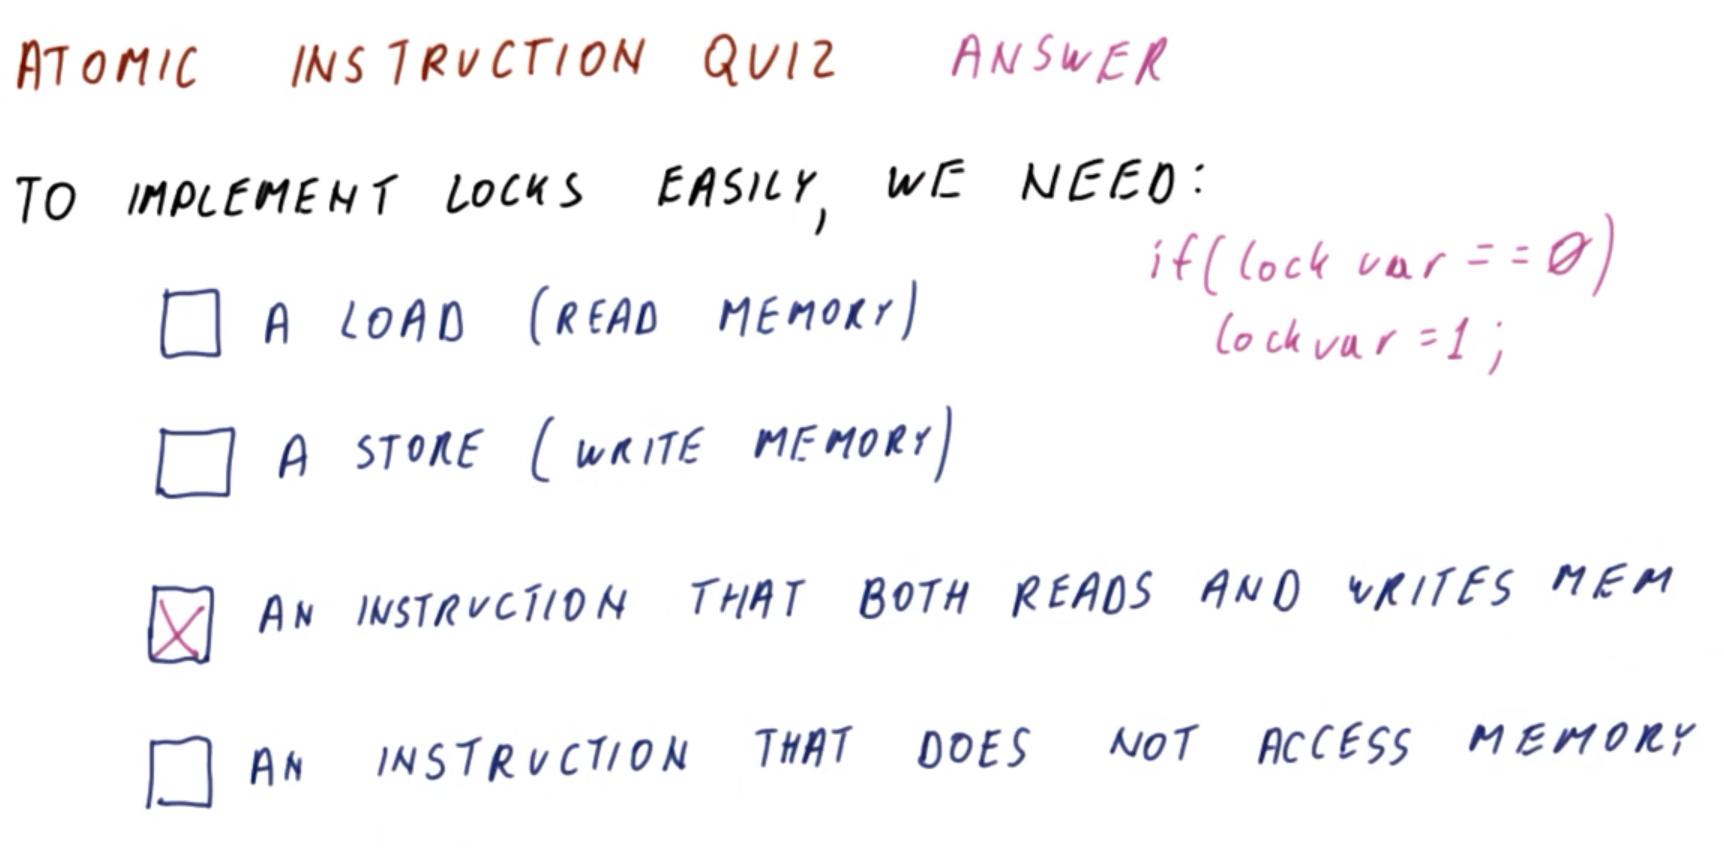 ATOMIC INSTRUCTION QUIZ ANSWER
TO IMPLEMENT LOCKS EASILY, WE NEED:
if(lock var == 0)
lockvar = 1;
A LOAD (READ MEMORY)
A STORE (WRITE MEMORY)
AN INSTRUCTION THAT BOTH READS AND WRITES MEM
AN INSTRUCTION THAT DOES NOT ACCESS MEMORY